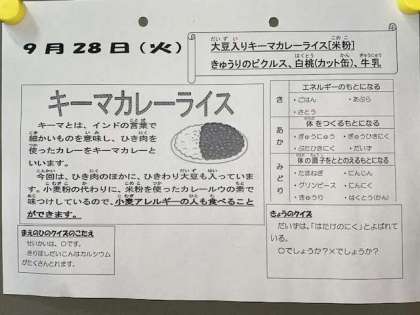 9月28日(火)
大豆入りキーマカレーライス[米粉]
きゅうりのピクルス、白桃(カット缶)、牛乳
キーマカレーライス
キーマとは、インドの言葉で
細かいものを意味し、ひき肉を
使ったカレーをキーマカレーと
いいます。
今回は、ひき肉のほかに、ひきわり大豆も入っていま
す。小麦粉の代わりに、米粉を使ったカレールウの素で
味つけしているので、小麦アレルギーの人も食べること
ができます。
まえのひのクイズのこたえ
せいかいは、〇です。
きりぼしだいこんはカルシウム
がたくさんとれます。
き
エネルギーのもとになる
・ごはん ・あぶら
・さとう
あか
体をつくるもとになる
・ぎゅうにゅう ・ぎゅうひきにく
・ぶたひきにく ・だいず
みどり
体の調子をととのえるもとになる
・たまねぎ ・にんじん
・グリンピース ・にんにく
・きゅうり ・はくとう(かん)
きょうのクイズ
だいずは、「はたけのにく」とよばれてい
る。
〇でしょうか？×でしょうか？